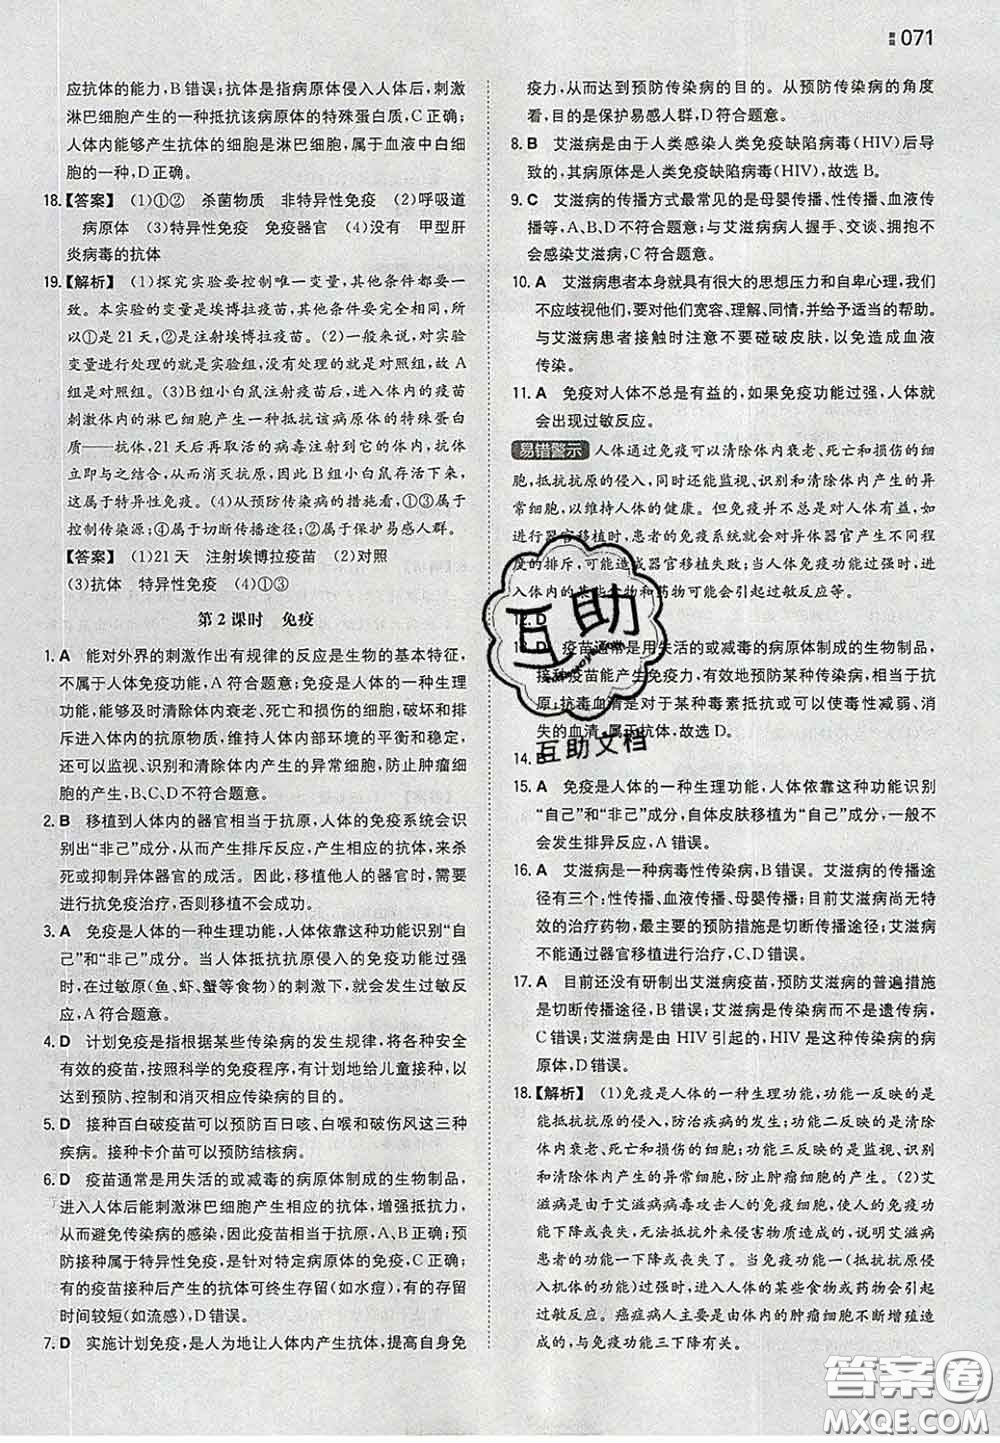 答案 071
应抗体的能力，B错误；抗体是指病原体侵入人体后，刺激
淋巴细胞产生的一种抵抗该病原体的特殊蛋白质，C正确；
人体内能够产生抗体的细胞是淋巴细胞，属于血液中白细
胞的一种，D正确。
18.【答案】 (1)①② 杀菌物质 非特异性免疫 (2)呼吸道
病原体 (3)特异性免疫 免疫器官 (4)没有 甲型肝
炎病毒的抗体
19.【解析】 (1)探究实验要控制唯一变量，其他条件都要一
致。本实验的变量是埃博拉疫苗，其他条件要完全相同，所
以①是21天，②是注射埃博拉疫苗。(2)一般来说，对实验
变量进行处理的就是实验组，没有处理的就是对照组。故A
组是对照组。(3)B组小白鼠注射疫苗后，进入体内的疫苗
刺激体内的淋巴细胞产生一种抵抗该病原体的特殊蛋白
质——抗体，21天后再取活的病毒注射到它的体内，抗体
立即与之结合，从而消灭抗原，因此B组小白鼠存活下来，
这属于特异性免疫。(4)从预防传染病的措施看，①③属于
控制传染源；④属于切断传播途径；②属于保护易感人群。
【答案】 (1)21天 注射埃博拉疫苗 (2)对照
(3)抗体 特异性免疫 (4)①③
第2课时 免疫
1. A 能对外界的刺激作出有规律的反应是生物的基本特征，
不属于人体免疫功能，A符合题意；免疫是人体的一种生理
功能，能够及时清除体内衰老、死亡和损伤的细胞，破坏和排
斥进入体内的抗原物质，维持人体内部环境的平衡和稳定，
还可以监视、识别和清除体内产生的异常细胞，预防肿瘤细
胞的产生，B、C、D不符合题意。
2. B 移植到人体内的器官相当于抗原，人体的免疫系统会识
别出“非己”成分，从而产生排斥反应，产生相应的抗体，来杀
死或抑制异体器官的成活。因此，移植他人的器官时，需要
进行抗免疫治疗，否则移植不会成功。
3. A 免疫是人体的一种生理功能，人体依靠这种功能识别“自
己”和“非己”成分。当人体抵抗抗原侵入的免疫功能过强时，
在过敏原(鱼、虾、蟹等食物)的刺激下，就会发生过敏反
应，A符合题意。
4. D 计划免疫是指根据某些传染病的发生规律，将各种安全
有效的疫苗，按照科学的免疫程序，有计划地给儿童接种，以
达到预防、控制和消灭相应传染病的目的。
5. D 接种百白破疫苗可以预防百日咳、白喉和破伤风这三种
疾病。接种卡介苗可以预防结核病。
6. D 疫苗通常是用失活的或减毒的病原体制成的生物制品，
进入人体后能刺激淋巴细胞产生相应的抗体，增强抵抗力，
从而避免传染病的感染，因此疫苗相当于抗原，A、B正确；预
防接种属于特异性免疫，是针对特定病原体的免疫，C正确；
有的疫苗接种后产生的抗体可终生存留(如水痘)，有的存留
时间较短(如流感)，D错误。
7. D 实施计划免疫，是人为地让人体内产生抗体，提高自身免
疫力，从而达到预防传染病的目的。从预防传染病的角度
看，目的是保护易感人群，D符合题意。
8. B 艾滋病是由于人类感染人类免疫缺陷病毒(HIV)后导
致的，其病原体是人类免疫缺陷病毒(HIV)，故选B。
9. C 艾滋病的传播方式最常见的是母婴传播、性传播、血液传
播等，A、B、D不符合题意；与艾滋病病人握手、交谈、拥抱不
会感染艾滋病，C符合题意。
10. A 艾滋病患者本身就具有很大的思想压力和自卑心理，我们
不应歧视他们，要对他们宽容、理解、同情，并给予适当的帮助。
与艾滋病患者接触时注意不要碰破皮肤，以免造成血液
传染。
11. A 免疫对人体不总是有益的，如果免疫功能过强，人体就
会出现过敏反应。
易错警示 人体通过免疫可以清除体内衰老、死亡和损伤的细
胞，抵抗抗原的侵入，同时还能监视、识别和清除体内产生的异
常细胞，以维持人体的健康。但免疫并不总是对人体有益，如
进行器官移植时，患者的免疫系统就会对异体器官产生不同程
度的排斥，可能造成器官移植失败；当人体免疫功能过强时，进
入体内的某些食物和药物可能会引起过敏反应等。
12. D
13. D 疫苗通常是用失活的或减毒的病原体制成的生物制品，
接种疫苗能产生免疫力，有效地预防某种传染病。抗毒血清是对于某种毒素抵抗或可以使毒性减弱、消
失的血清，属于抗体，故选D。
14. B
15. A 免疫是人体的一种生理功能，人体依靠这种功能识别
“自己”和“非己”成分，自体皮肤移植为“自己”成分，一般不
会发生排异反应，A错误。
16. A 艾滋病是一种病毒性传染病，B错误。艾滋病的传播途
径有三个：性传播、血液传播、母婴传播；目前艾滋病尚无特
效的治疗药物，最主要的预防措施是切断传播途径；艾滋病
不可以通过器官移植进行治疗，C、D错误。
17. A 目前还没有研制出艾滋病疫苗，预防艾滋病的普遍措施
是切断传播途径，B错误；艾滋病是传染病而不是遗传病，
C错误；艾滋病是由HIV引起的，HIV是这种传染病的病
原体，D错误。
18.【解析】 (1)免疫是人体的一种生理功能，功能一反映的是
能抵抗抗原的侵入，防治疾病的发生；功能二反映的是清除
体内衰老、死亡和损伤的细胞；功能三反映的是监视、识别
和清除体内产生的异常细胞，预防肿瘤的发生。(2)艾
滋病是艾滋病病毒攻击人体的免疫系统，使人的免疫
功能下降或丧失，无法抵抗外来侵害物质造成的，说明艾滋病
患者的功能一下降或丧失了。当免疫功能一(抵抗抗原侵入
机体的功能)过强时，进入人体的某些食物或药物会引起
过敏反应。癌症病人主要是由体内的肿瘤细胞大量增殖造
成的，与免疫功能三下降有关。
互助
互助文档
答案圈
MXQE.COM